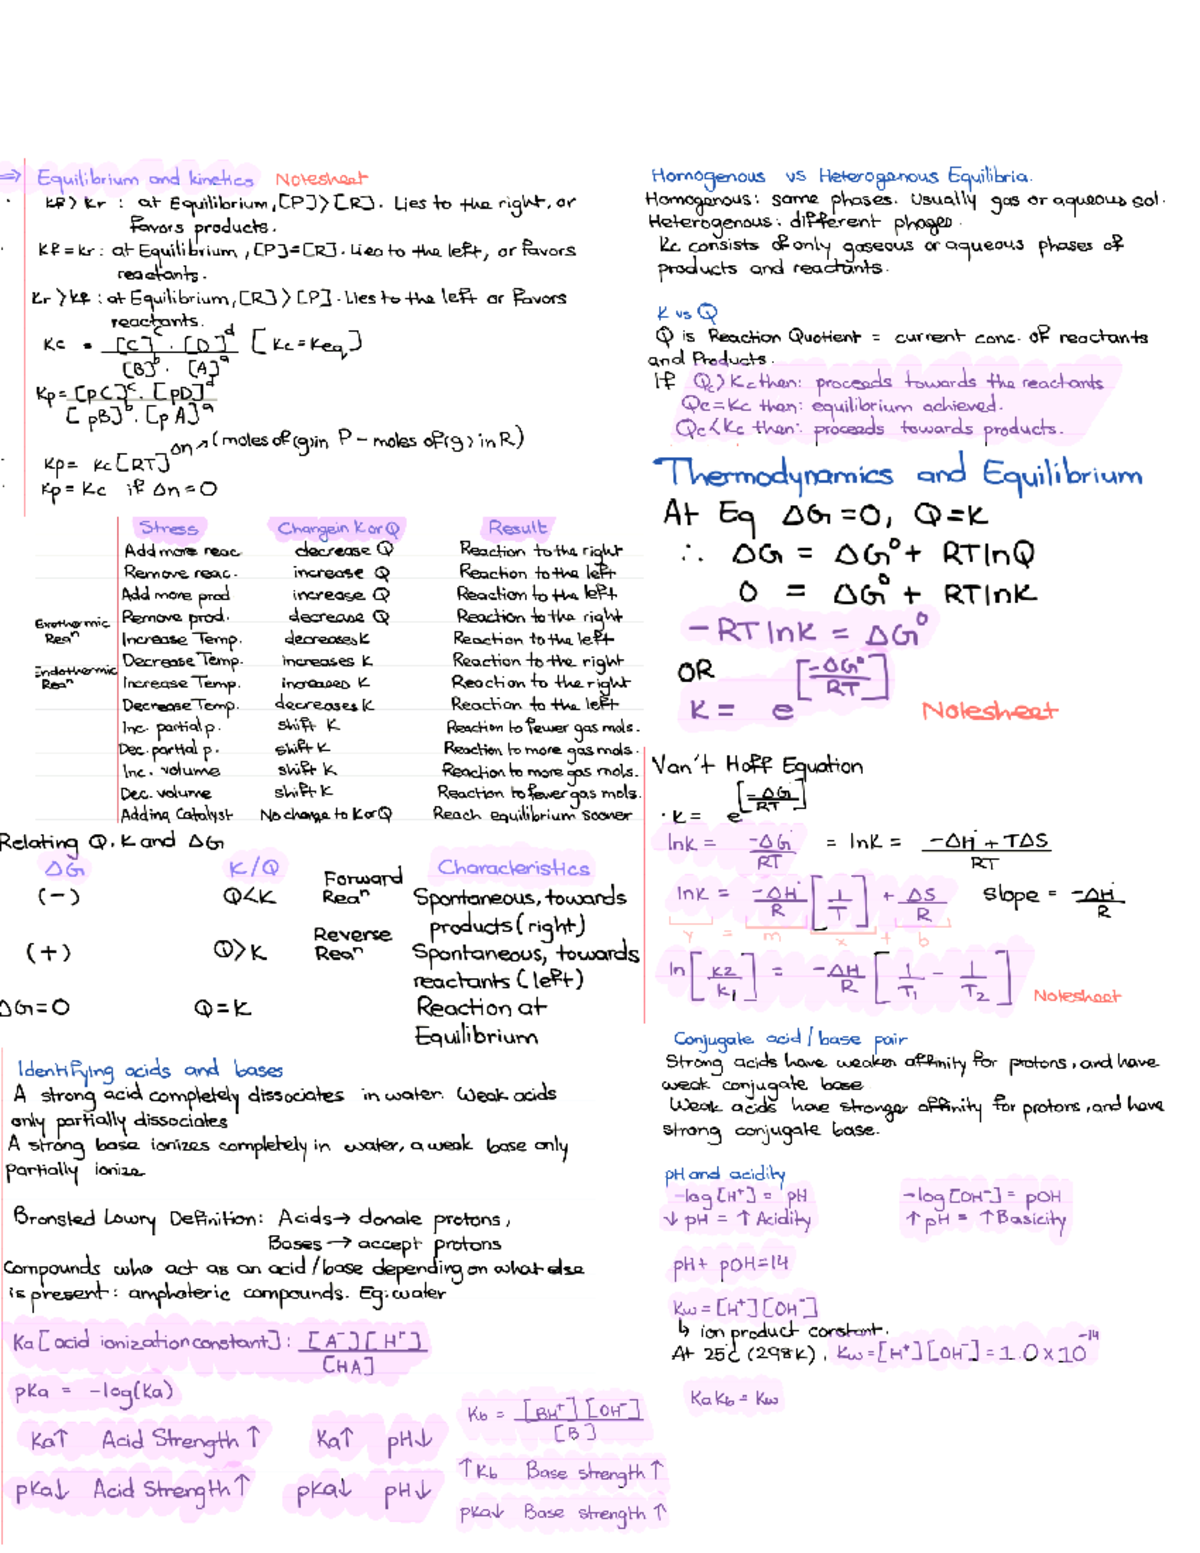 ⇒ Equilibrium and kinetics Notesheet
· Kf > Kr : at Equilibrium, [P]>[R]. Lies to the right, or
favors products.
· Kf = Kr : at Equilibrium, [P]=[R]. Lies to the left, or favors
reactants.
Kr > Kf : at Equilibrium, [R]>[P]. Lies to the left or favors
reactants.
Kc = [C]^c · [D]^d / [B]^b · [A]^a [Kc = Keq]
Kp = [pC]^c · [pD]^d / [pB]^b · [pA]^a
· Kp = Kc [RT]^Δn → (moles of (g) in P - moles of (g) in R)
· Kp = Kc if Δn = 0
Stress Change in K or Q Result
Add more reac decrease Q Reaction to the right
Remove reac. increase Q Reaction to the left
Add more prod increase Q Reaction to the left
Remove prod. decrease Q Reaction to the right
Exothermic Reaⁿ Increase Temp. decreases K Reaction to the left
Decrease Temp. increases K Reaction to the right
Endothermic Reaⁿ Increase Temp. increases K Reaction to the right
Decrease Temp. decreases K Reaction to the left
Inc. partial p. shift K Reaction to fewer gas mols.
Dec. partial p. shift K Reaction to more gas mols.
Inc. volume shift K Reaction to more gas mols.
Dec. volume shift K Reaction to fewer gas mols.
Adding Catalyst No change to K or Q Reach equilibrium sooner
Relating Q, K and ΔG
ΔG K/Q Characteristics
(-) Q<K Forward Reaⁿ Spontaneous, towards
products (right)
(+) Q>K Reverse Reaⁿ Spontaneous, towards
reactants (left)
ΔG=0 Q=K Reaction at
Equilibrium
Identifying acids and bases
A strong acid completely dissociates in water. Weak acids
only partially dissociates
A strong base ionizes completely in water, a weak base only
partially ionize
Bronsted Lowry Definition: Acids → donate protons,
Bases → accept protons
Compounds who act as an acid/base depending on what else
is present: amphoteric compounds. Eg: water
Ka [acid ionization constant] : [A⁻][H⁺] / [HA]
pKa = -log(Ka)
Ka↑ Acid Strength ↑ Ka↑ pH↓
pKa↓ Acid Strength ↑ pKa↓ pH↓
Kb = [BH⁺][OH⁻] / [B]
↑Kb Base strength ↑
pKa↓ Base strength ↑
Homogenous vs Heterogenous Equilibria.
Homogenous: same phases. Usually gas or aqueous sol.
Heterogenous: different phases.
Kc consists of only gaseous or aqueous phases of
products and reactants.
K vs Q
Q is Reaction Quotient = current conc. of reactants
and Products.
If Qc > Kc then: proceeds towards the reactants
Qc = Kc then: equilibrium achieved.
Qc < Kc then: proceeds towards products.
Thermodynamics and Equilibrium
At Eq ΔG = 0, Q = K
∴ ΔG = ΔG° + RT lnQ
0 = ΔG° + RT lnK
-RT lnK = ΔG°
OR
K = e^[-ΔG°/RT]
Notesheet
Van't Hoff Equation
· K = e^[-ΔG°/RT]
lnK = -ΔG°/RT = lnK = -ΔH° + TΔS / RT
lnK = -ΔH°/R [1/T] + ΔS/R slope = -ΔH°/R
y = m x + b
ln[K2/K1] = -ΔH/R [1/T1 - 1/T2]
Notesheet
Conjugate acid/base pair
Strong acids have weaker affinity for protons, and have
weak conjugate base
Weak acids have stronger affinity for protons, and have
strong conjugate base.
pH and acidity
-log[H⁺] = pH -log[OH⁻] = pOH
↓ pH = ↑ Acidity ↑ pH = ↑ Basicity
pH + pOH = 14
Kw = [H⁺][OH⁻]
↳ ion product constant.
At 25°C (298K), Kw = [H⁺][OH⁻] = 1.0 x 10⁻¹⁴
Ka Kb = Kw